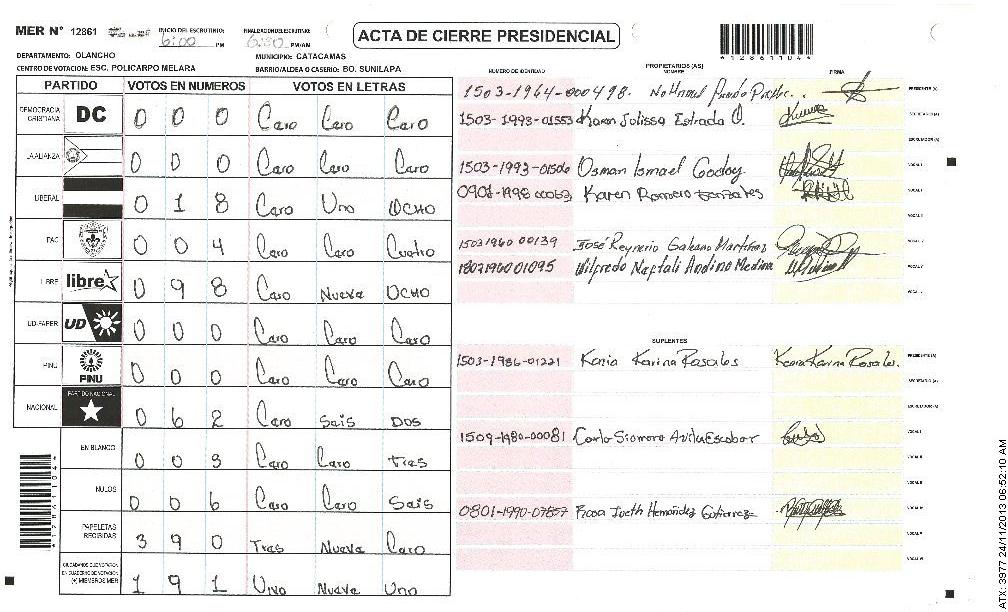 MER N° 12861 INICIO DEL ESCRUTINIO: 6:00 PM FINALIZACION DEL ESCRUTINIO: PM/AM
ACTA DE CIERRE PRESIDENCIAL
*128611044*
DEPARTAMENTO: OLANCHO MUNICIPIO: CATACAMAS
CENTRO DE VOTACION: ESC. POLICARPO MELARA BARRIO/ALDEA O CASERIO: BO. SUNILAPA
PARTIDO VOTOS EN NUMEROS VOTOS EN LETRAS
DEMOCRACIA CRISTIANA DC 0 0 0 Caro Caro Caro
LA ALIANZA 0 0 0 Caro Caro Caro
LIBERAL 0 1 8 Caro Uno OCHO
PAC 0 0 4 Caro Caro Cuatro
LIBRE libre 0 9 8 Caro Nueve OCHO
UD-FAPER UD 0 0 0 Caro Caro Caro
PINU PINU 0 0 0 Caro Caro Caro
NACIONAL PARTIDO NACIONAL 0 6 2 Caro Sais Dos
EN BLANCO 0 0 3 Caro Caro Tras
NULOS 0 0 6 Caro Caro Sais
PAPELETAS RECIBIDAS 3 9 0 Tras Nueve Caro
CIUDADANOS QUE VOTARON EN CUADERNO DE VOTACION (+) MIEMBROS MER 1 9 1 Uno Nueve Uno
*128611044*
PROPIETARIOS (AS)
NUMERO DE IDENTIDAD NOMBRE FIRMA
1503-1964-000498. PRESIDENTE (A)
1503-1993-01553 Karen Julissa Estrada O. SECRETARIO (A)
ESCRUTADOR (A)
1503-1993-01506 Osman Ismael Godoy VOCAL
0901-1998 00063 Karen Romero VOCAL
VOCAL
1503 1960 00139 José Reynerio Galeano Martinez VOCAL
1807 1960 01095 Wilfredo Neptali Andino Medina VOCAL
VOCAL
SUPLENTES
1503-1986-01221 Kenia Karina Rosales Kenia Karina Rosales. PRESIDENTE (A)
SECRETARIO (A)
ESCRUTADOR (A)
1509-1980-00081 Carlo Siomara Avila Escobar VOCAL
VOCAL
VOCAL
0801-1990-07857 Rosa Hernández Gutierrez VOCAL
VOCAL
VOCAL
ATX: 3977 24/11/2013 06:52:10 AM